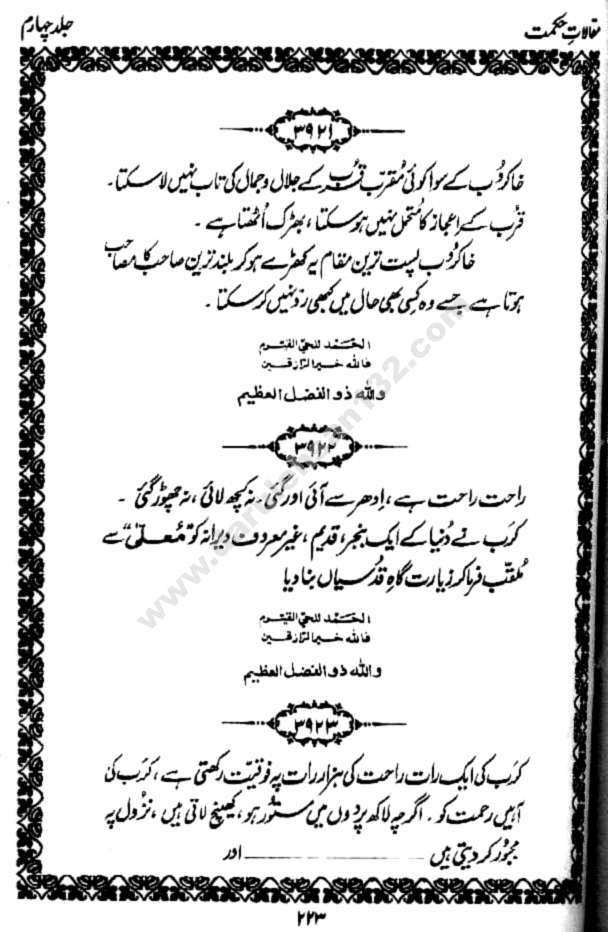 مقالاتِ حکمت جلد چہارم
۳۹۲۱
خاکروب کے سوا کوئی مقرب قُرب کے جلال و جمال کی تاب نہیں لا سکتا۔
قُرب کے اعجاز کا متحمل نہیں ہو سکتا، بھڑک اُٹھتا ہے۔
خاکروب پست ترین مقام پہ کھڑے ہو کر بلند ترین صاحب کا مصاحب
ہوتا ہے جسے وہ کسی بھی حال میں کبھی رد نہیں کر سکتا۔
الحمد للحی القیوم
فاللہ خیر الرازقین
واللہ ذو الفضل العظیم
۳۹۲۲
راحت راحت ہے، اِدھر سے آئی اور گئی۔ نہ کچھ لائی، نہ چھوڑ گئی۔
کرب نے دُنیا کے ایک بنجر، قدیم، غیر معروف ویرانہ کو "مُعلّیٰ" سے
مُلقّب فرما کر زیارت گاہِ قدُسیاں بنا دیا
الحمد للحی القیوم
فاللہ خیر الرازقین
واللہ ذو الفضل العظیم
۳۹۲۳
کرب کی ایک رات راحت کی ہزار رات پہ فوقیت رکھتی ہے، کرب کی
آہیں رحمت کو۔ اگرچہ لاکھ پردوں میں مستُور ہو، کھینچ لاتی ہیں، نزُول پہ
مجبُور کر دیتی ہیں ـــــــ اور
۲۲۳
www.darulehsan132.com